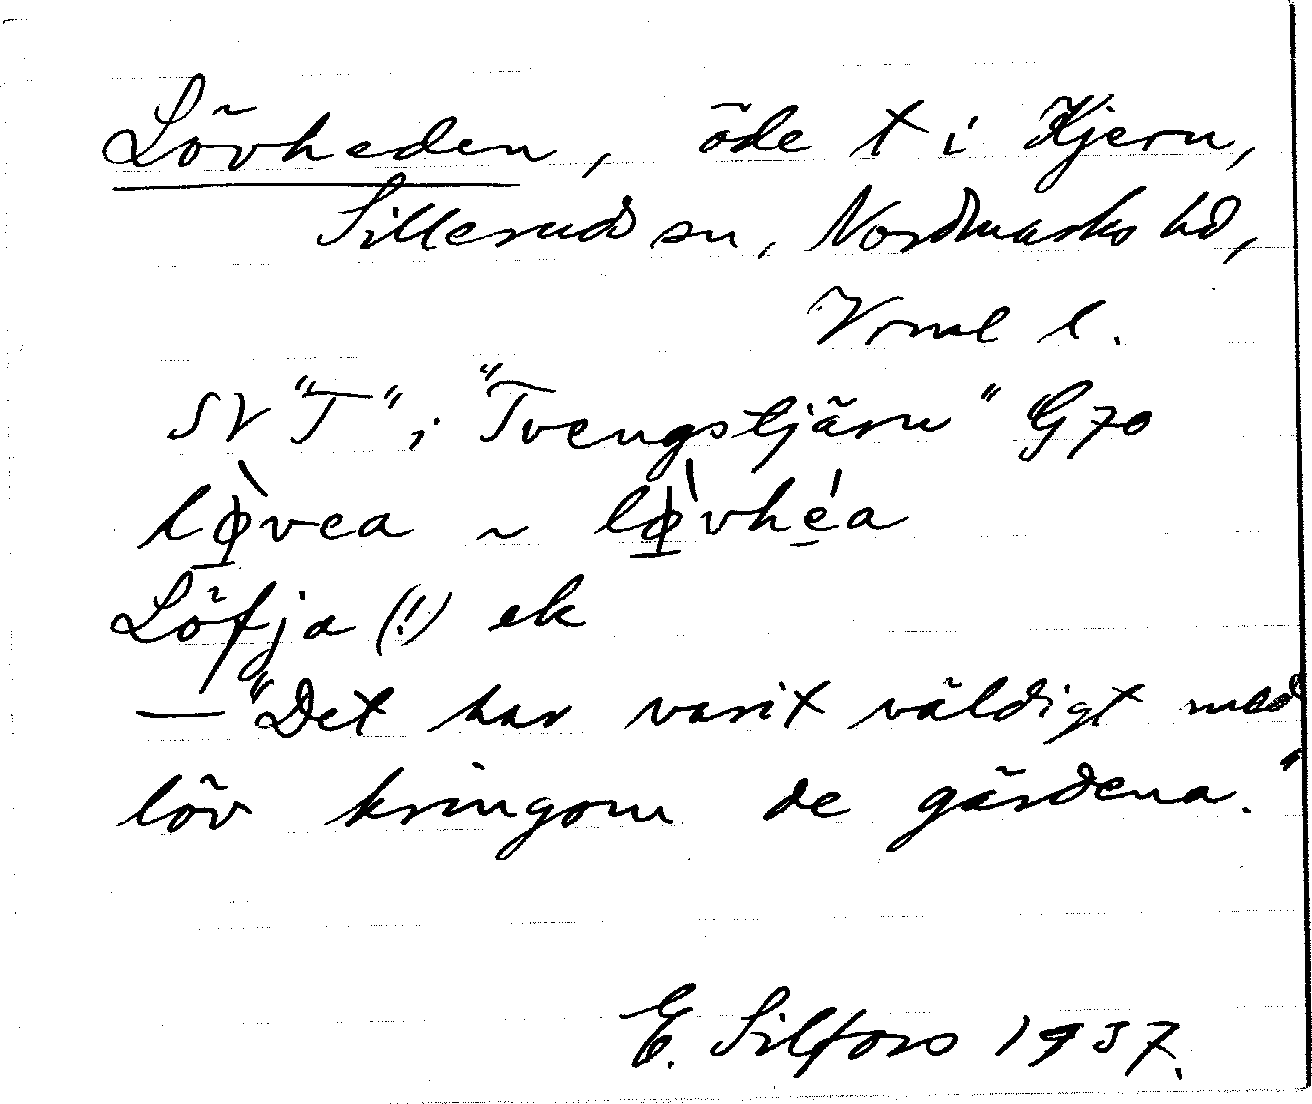 Lövheden, öde t i Kjern,
Sillerud sn, Nordmarks hd,
Vrml l.
SV "T" i "Tvengstjärn" G70
lø̀vea ~ lø̀vhé̱a
Löfja (!) ek
— "Det har varit väldigt med
löv kringom de gärdena."
E. Silfors 1937.